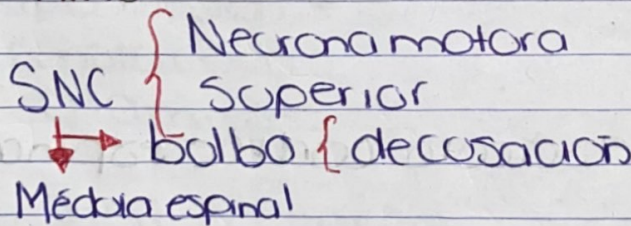 Neurona motora
SNC { superior
→ bolbo { decusación
Médula espinal